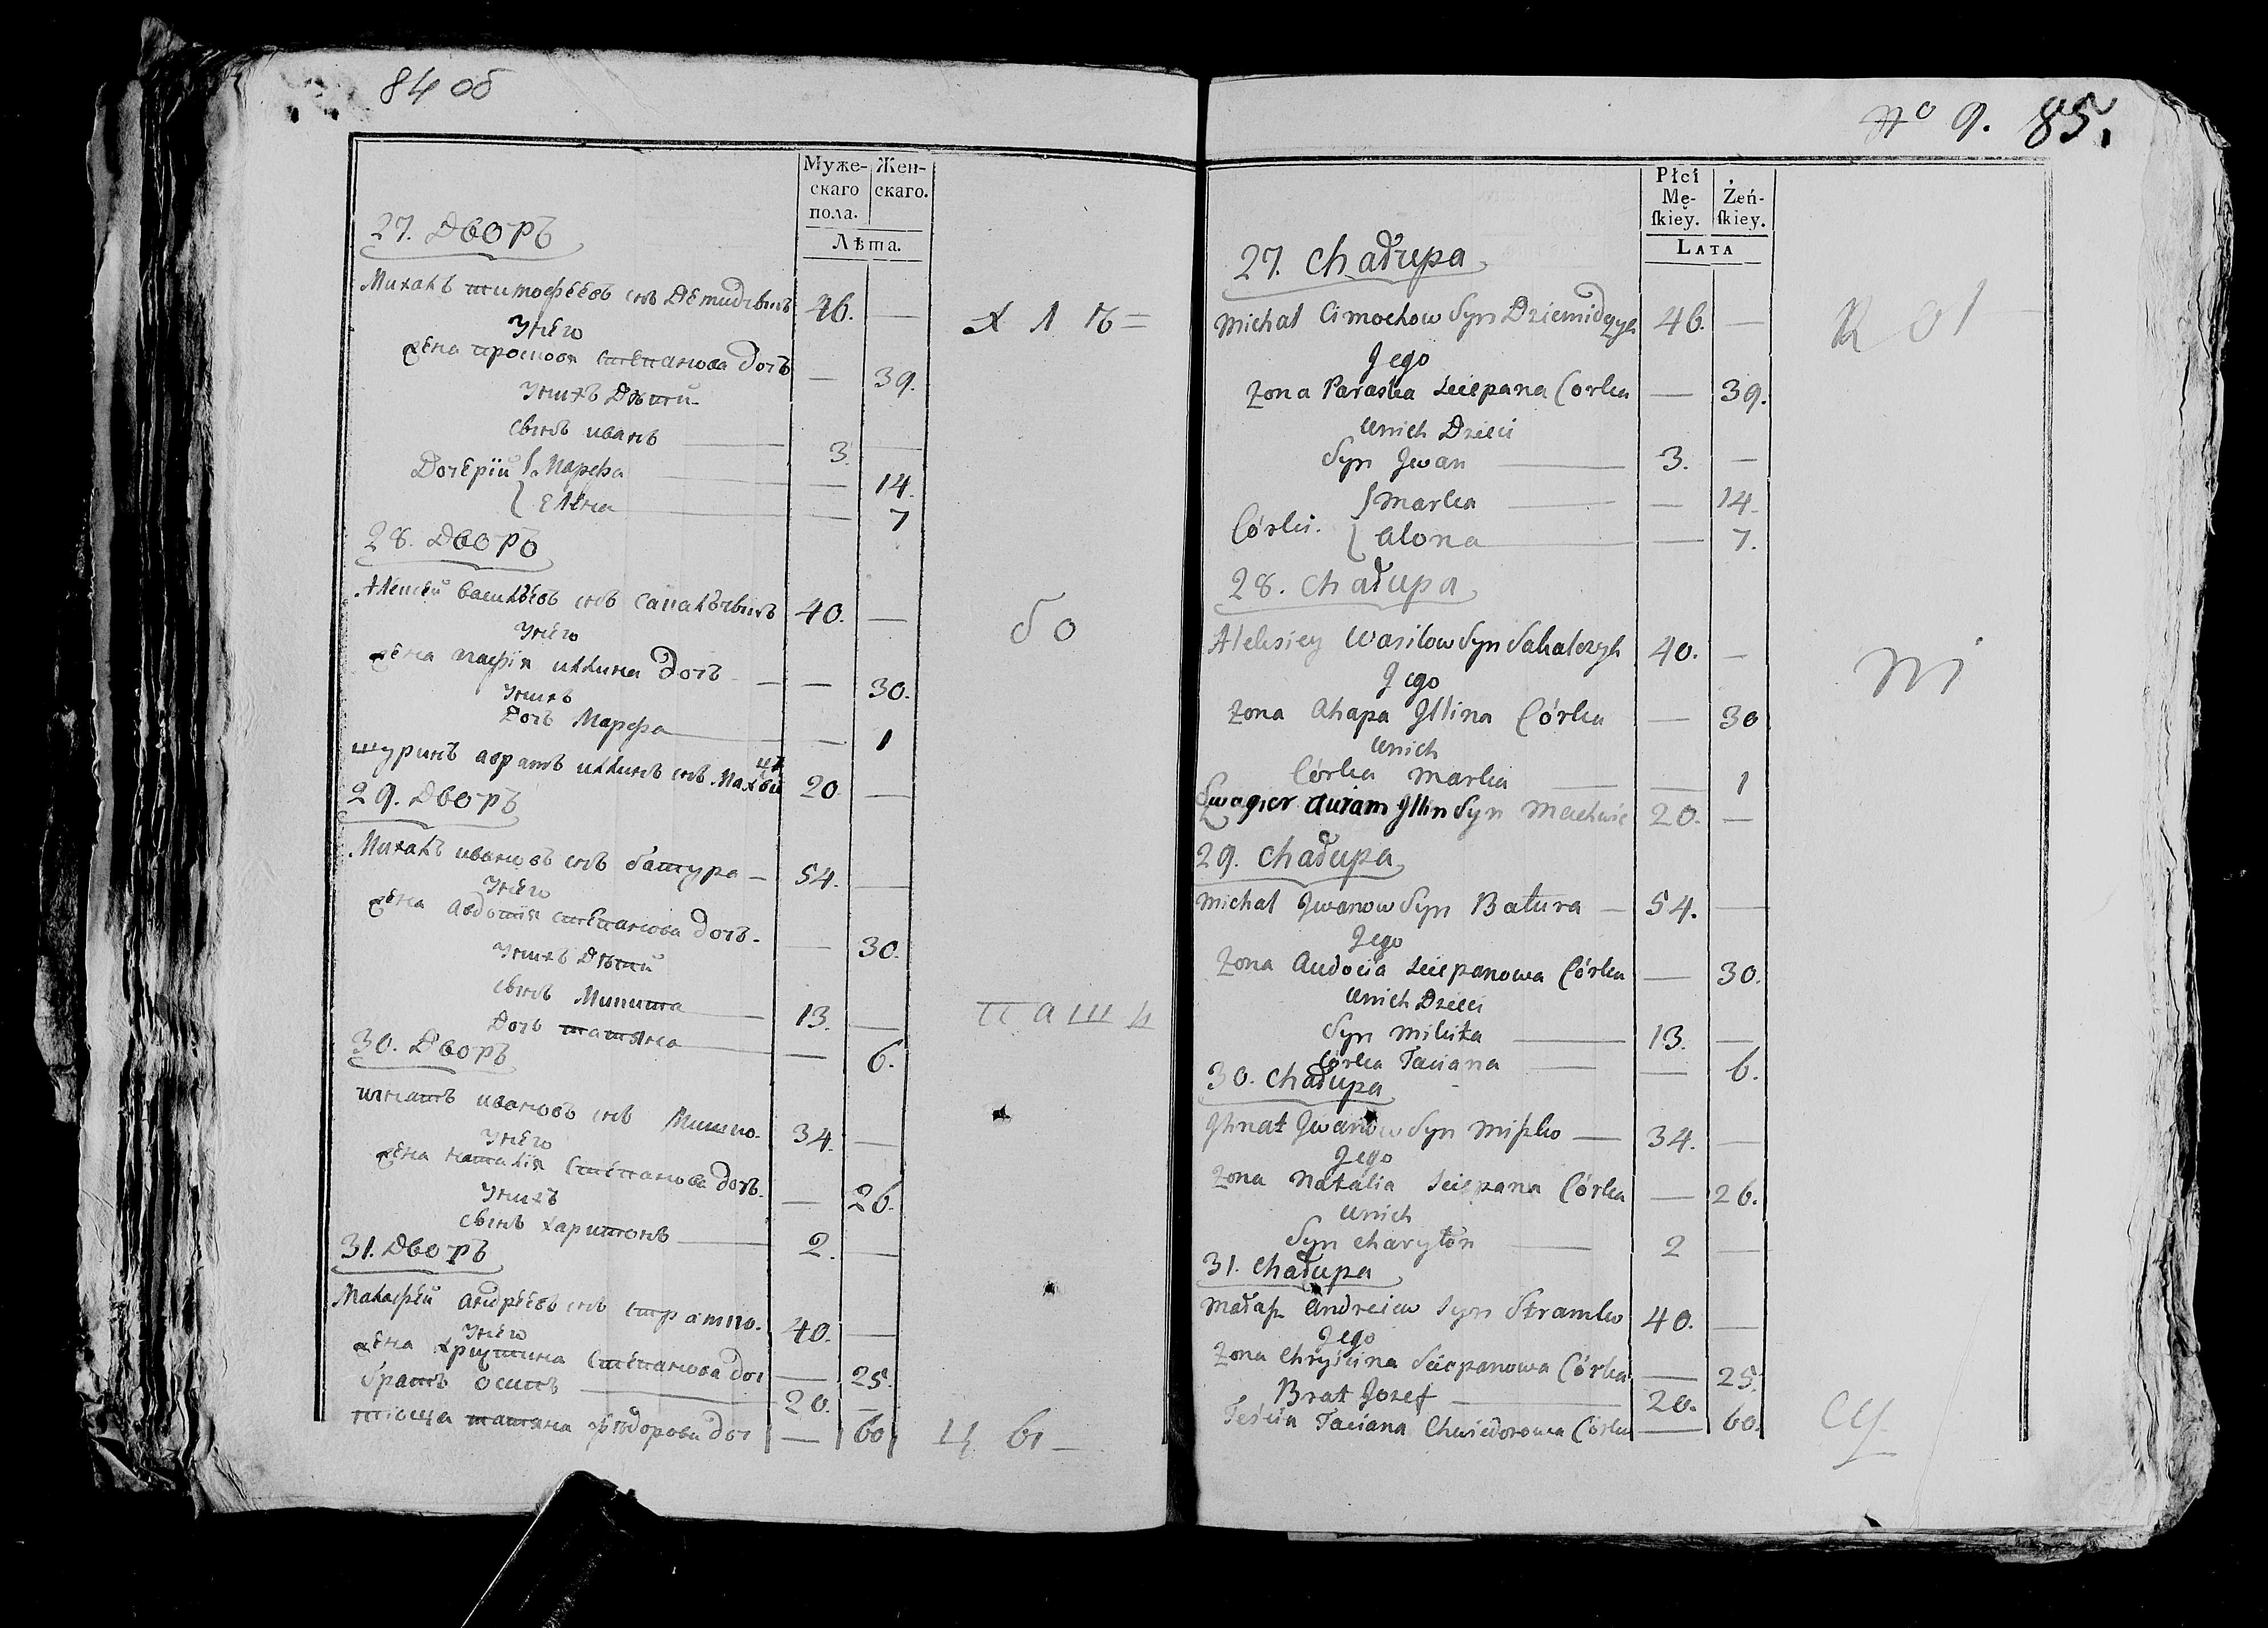 84 об
Муже-
скаго
пола.
Жен-
скаго.
Лѣта.
27. Дворъ
Михалъ тимофѣевъ снъ Демидчыкъ 46. —
У него
жена просковя степанова дочъ — 39.
У нихъ Дѣти
сынъ иванъ 3. —
Дочерїи Марфа — 14.
елена — 7
х л ѣ =
28. Дворъ
Алексей василѣевъ снъ сахалъчыкъ 40. —
У него
жена илкина дочъ — 30.
У нихъ
Дочъ Марфа — 1
шуринъ аврамъ илкинъ снъ 20 —
б о
29. Дворъ
Михалъ ивановъ снъ батура — 54. —
У него
жена авдотїя степанова дочъ — 30.
У нихъ Дѣтей
сынъ Микита 13. —
Дочъ татяна — 6.
п а ш ц
30. Дворъ
игнатъ ивановъ снъ Мишко 34. —
У него
жена наталїя степанова дочъ — 26.
У нихъ
сынъ харитонъ 2. —
31. Дворъ
Малафей андрѣевъ снъ страмко. 40. —
У него
жена христина степанова доч — 25.
братъ осипъ 20. —
тюща татяна фѣодорова доч — 60
ц ы —
No 9. 85.
Płci
Mę-
ſkiey.
Żeń-
ſkiey.
LATA
27. Chałupa
Michał Cimochow Syn Dziemidczyk 46. —
Jego
Zona Paraska Sciepana Corka — 39.
Unich Dzieci
Syn Jwan 3. —
Córki. Marka — 14.
Alona — 7.
R o l
28. Chałupa
Aleksiey Wasilow Syn Sakalczyk 40. —
Jego
Zona Ahapa Jllina Córka — 30
Unich
Córka Marka — 1
Szwagier Auram Jllin Syn 20. —
n i
29. Chałupa
Michał Jwanow Syn Batura — 54. —
Jego
Zona Audocia Sciepanowa Córka — 30.
Unich Dzieci
Syn Mikita 13. —
Córka Taciana — 6.
30. Chałupa
Jhnat Jwanow Syn Miszko — 34. —
Jego
Zona Natalia Sciepana Córka — 26.
Unich
Syn Charyton 2 —
31. Chałupa
Andreiew Syn Stramko 40. —
Jego
Zona Chryścina Sciepanowa Córka — 25.
Brat Jozef 20.
Teścia Taciana Chwiedorowa Córka — 60.
cy